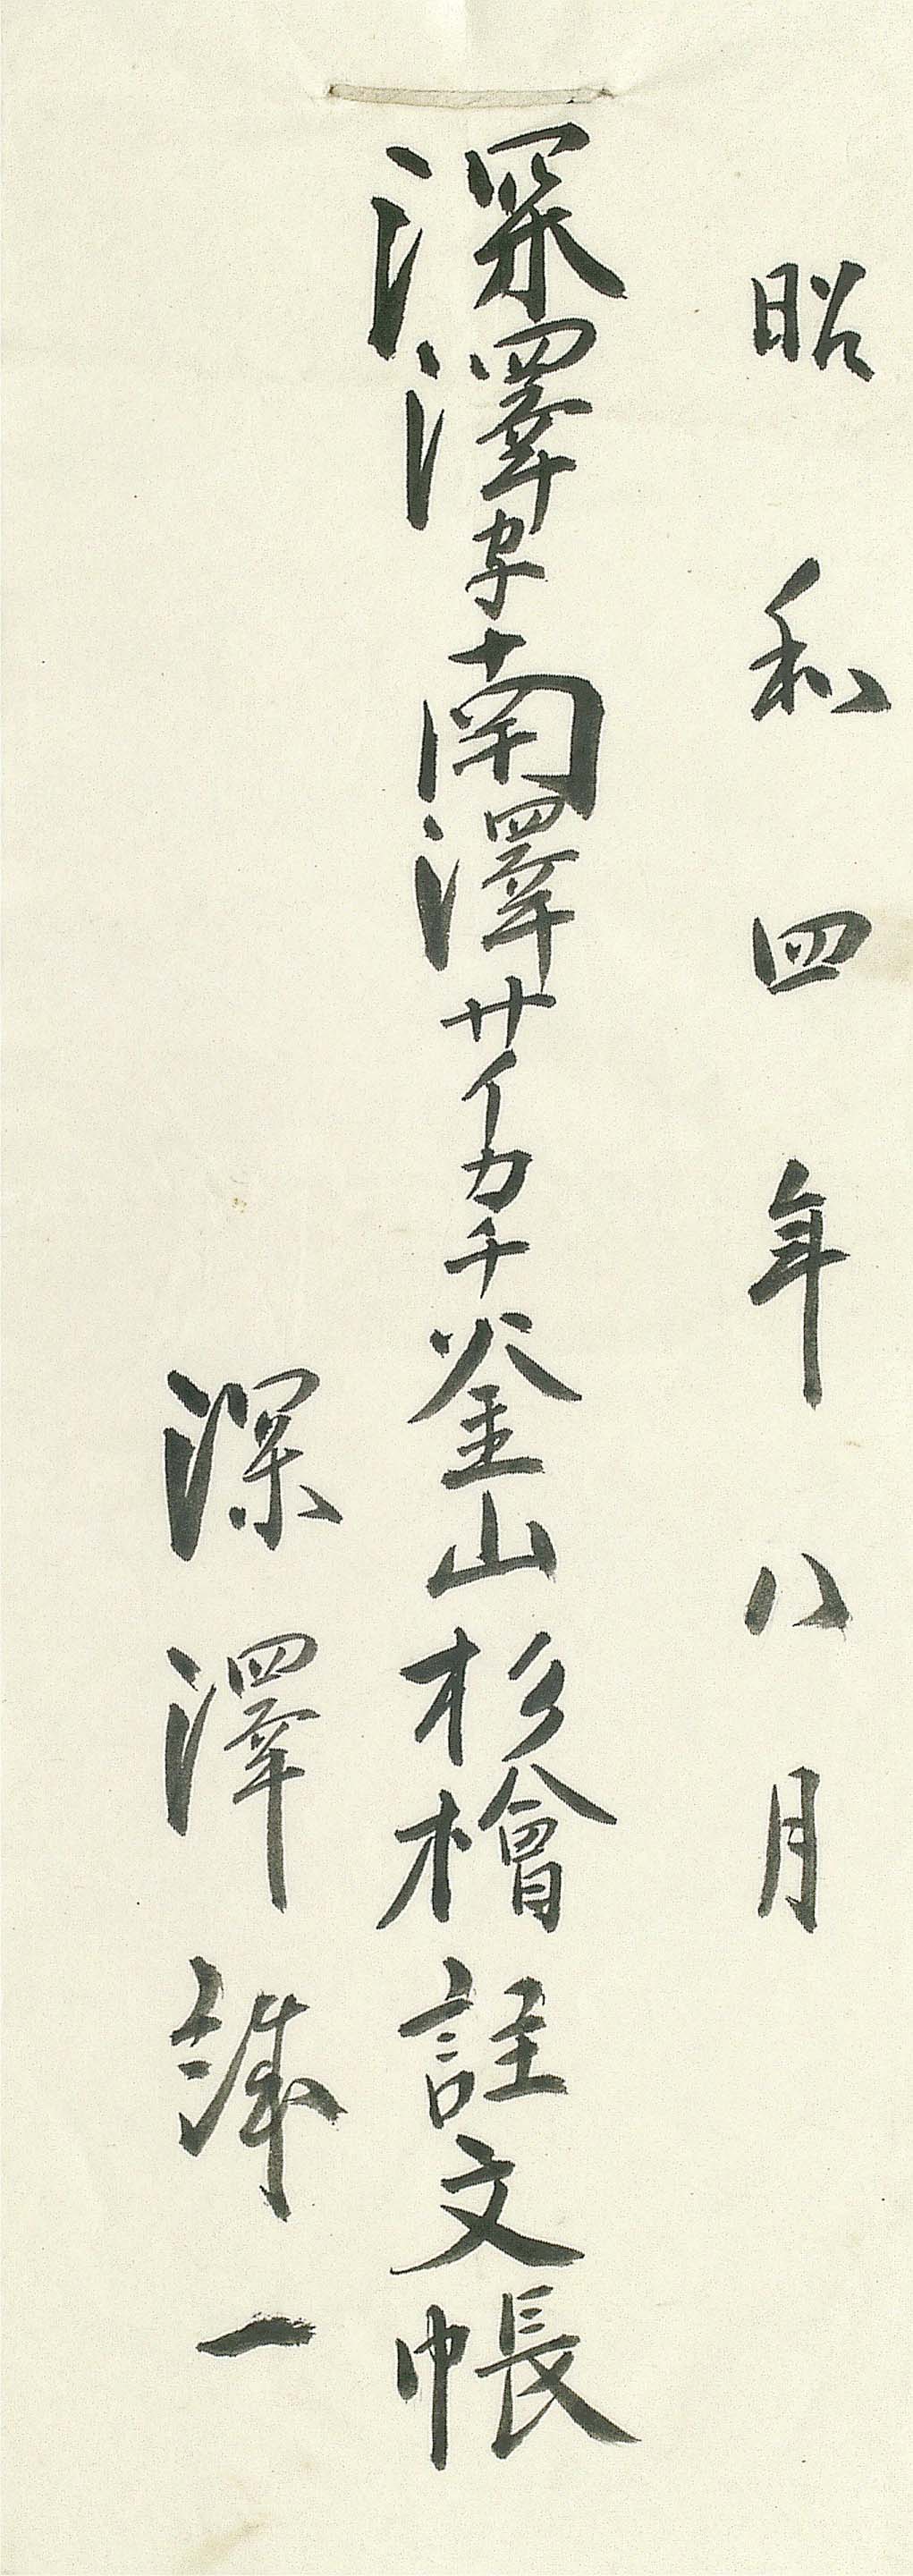 昭和四年八月
深澤字南澤サイカチ釜山杉檜註文帳
深澤 一